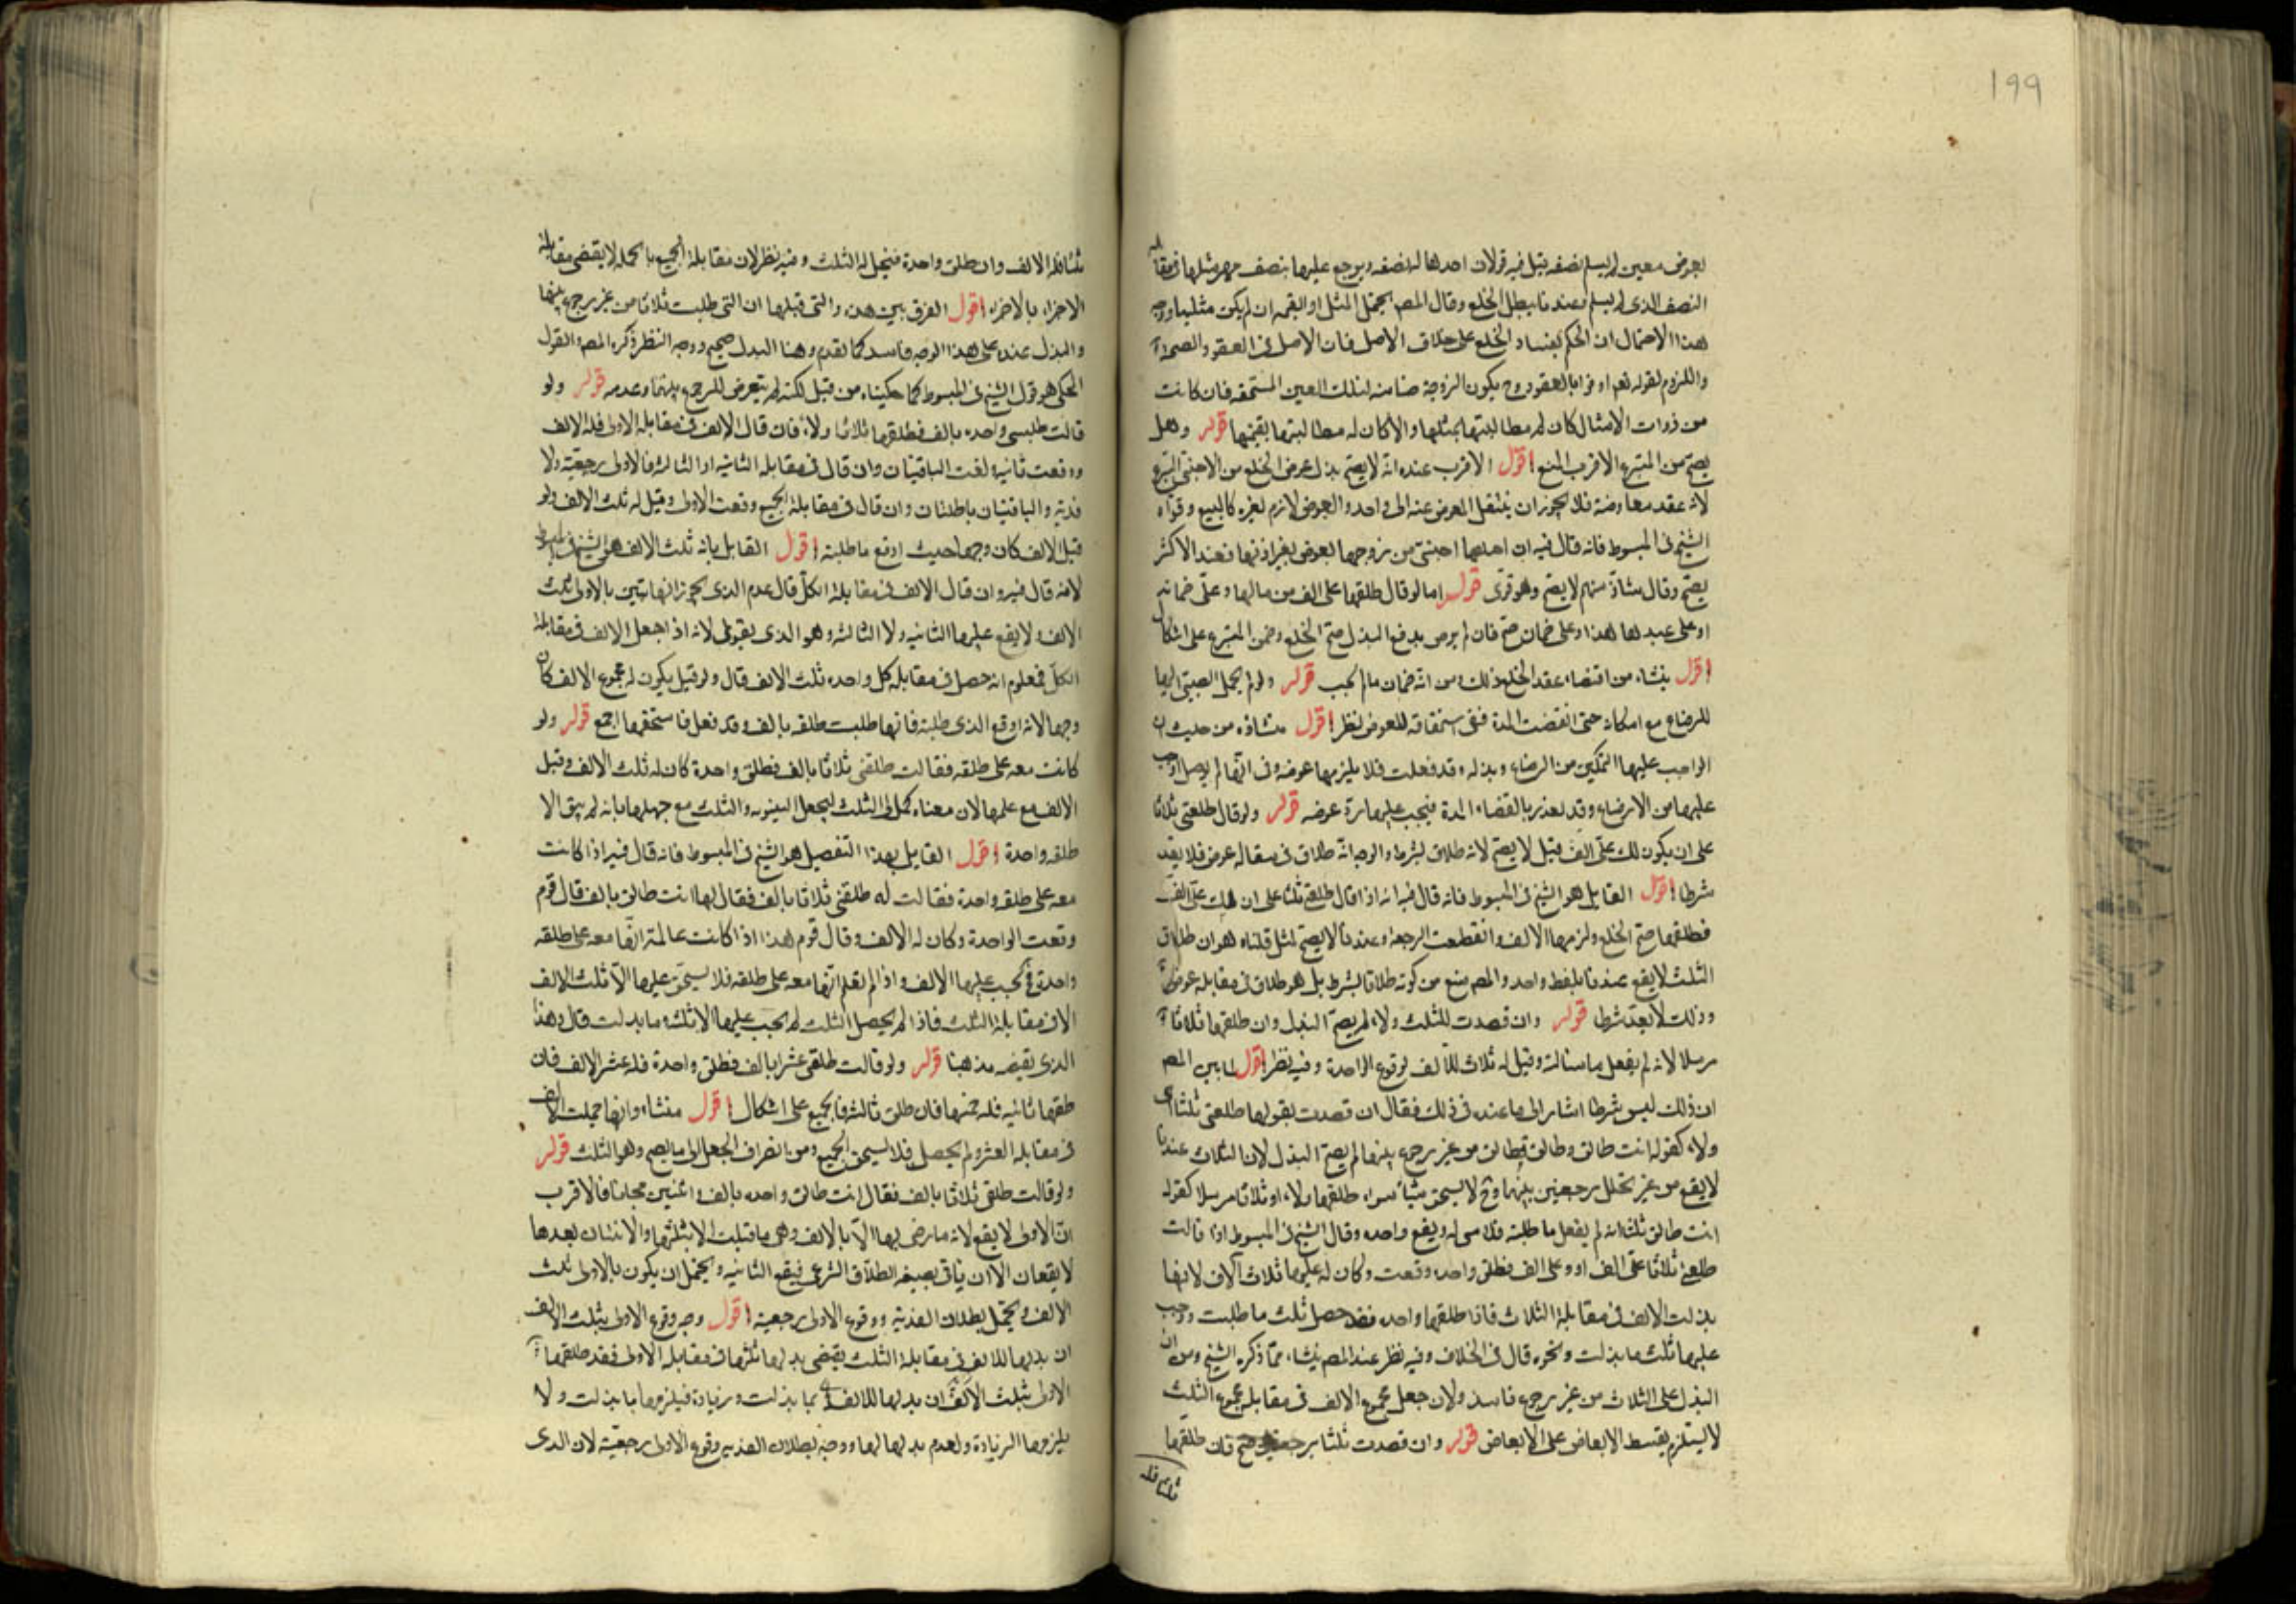 199
بعوض معين لم يسلم نصفه قيل فيه قولان احدهما له نصفه ويرجع عليها بنصف مهر مثلها في مقابلة
النصف الذي لم يسلم وعندنا يبطل الخلع وقال المص يحتمل المثل او القيمة ان لم يكن مثليا ووجه
هذا الاحتمال ان الحكم بفساد الخلع على خلاف الاصل فان الاصل في العقود الصحة
واللزوم لقوله تعم اوفوا بالعقود وح يكون الزوجة ضامنه لتلك العين المستحقه فان كانت
من ذوات الامثال كان له مطالبتها بمثلها والا كان له مطالبتها بقيمتها قوله وهل
يصح من المتبرع الاقرب المنع اقول الاقرب عنده انه لا يصح بذل عوض الخلع من الاجنبي المتبرع
لانه عقد معاوضة فلا يجوز ان ينتقل المعوض عنه الى واحد والعوض لازم لغيره كالبيع وقواه
الشيخ في المبسوط فانه قال فيه ان اختلعها اجنبي من زوجها بعوض بغير اذنها فعند الاكثر
يصح وقال شاذ منهم لا يصح وهو قوي قوله اما لو قال طلقها على الف من مالها وعلى ضمانه
او على عبدها هذا وعلى ضمانه صح فان لم يرض بدفع البذل صح الخلع وضمن المتبرع على اشكال
اقول ينشاء من اقتضاء عقد الخلع ذلك ومن انه ضمان ما لم يجب قوله ولو لم يحمل الصبي اليها
للرضاع مع امكانه حتى انقضت المدة ففي استحقاقه للعوض نظر اقول منشاؤه من حيث ان
الواجب عليها التمكين من الرضاع وبذله وقد فعلت فلا يلزمها عوضه وفي انها لم يوصل الواجب
عليها من الارضاع وقد تعذر بانقضاء المدة فيجب عليها رد عوضه قوله ولو قال طلقتي ثلاثا
على ان يكون لك علي الف قيل لا يصح لانه طلاق بشرط والوجه انه طلاق في مقابله عوض فلا يعد
شرطا اقول القايل هو الشيخ في المبسوط فانه قال فيه انه اذا قال طلقني ثلثا على ان لك علي الف
فطلقها صح الخلع ولزمها الالف وانقطعت الرجعة وعندنا لا يصح لمثل قلناه هو ان طلاق
الثلث لا يقع عندنا بلفظ واحد والمص منع من كونه طلاقا بشرط بل هو طلاق في مقابله عوض
وذلك لا يعد شرطا قوله وان قصدت الثلث ولاء لم يصح البذل وان طلقها ثلاثا
مرسلا لانه لم يفعل ما سئالته وقيل له ثلاث الالف لوقوع الواحدة وفيه نظر اقول لما بين المص
ان ذلك ليس شرطا اشار الى ما عنده في ذلك فقال ان قصدت بقولها طلقني ثلثا اي
ولاء كقوله انت طالق وطالق وطالق من غير رجوع بينها لم يصح البذل لان الثلاث عندنا
لا يقع من غير تخلل رجعتين بينهما وح لا يستحق شيئا سواء طلقها ولاء او ثلاثا مرسلا كقوله
انت طالق ثلثا لانه لم يفعل ما طلبته فلا شي له ويقع واحده وقال الشيخ في المبسوط اذا قالت
طلقني ثلاثا على الف او وعلى الف فطلق واحده وقعت وكان له عليها ثلاث آلاف لانها
بذلت الالف في مقابلة الثلاث فاذا طلقها واحده فقد حصل ثلث ما طلبت ووجب
عليها ثلث ما بذلت ونحوه قال في الخلاف وفيه نظر عند المص ينشاء مما ذكره الشيخ ومن ان
البذل على الثلاث من غير رجوع فاسد ولان جعل مجموع الالف في مقابله مجموع الثلث
لا يستلزم بقسط الابعاض على الابعاض قوله وان قصدت ثلثا برجعتين صح فان طلقها
ثلثا فله
ثلثا فله الالف وان طلق واحدة فنجعل له الثلث وفيه نظر لان مقابلة الجميع بالجملة لا يقتضي مقابلة
الاجزاء بالاجزاء اقول الفرق بين هذه والتي قبلها ان التي طلبت ثلاثا من غير رجوع بينها
والبذل عنده على هذا الوجه فاسد كما تقدم وهنا البذل صحيح ووجه النظر ذكره المص والقول
المحكي هو قول الشيخ في المبسوط كما حكيناه من قبل لكنه لم يتعرض للرجوع بينها وعدمه قوله ولو
قالت طلقني واحده بالف فطلقها ثلاثا ولاء فان قال الالف في مقابله الاولى فله الالف
ووقعت ثانية لغت الباقيتان وان قال في مقابله الثانيه او الثالثه فالاولى رجعية ولا
فدية والباقيتان باطلتان وان قال في مقابلة الجميع وقعت الاولى وقيل له ثلث الالف ولو
قيل الالف كان وجها حيث اوقع ما طلبته اقول القايل بانه ثلث الالف هو الشيخ في المبسوط
لانه قال فيه وان قال الالف في مقابلة الكل قال عدم الذي يجوز انها تبين بالاولى بثلث
الالف ولا يقع عليها الثانيه ولا الثالثه وهو الذي يقوى لانه اذا جعل الالف في مقابلة
الكل فمعلوم انه حصل في مقابلة كل واحده ثلث الالف قال ولو قيل يكون له مجموع الالف كان
وجها لانه اوقع الذي طلبته فانها طلبت طلقه بالف وقد فعل فاستحقها اجمع قوله ولو
كانت معه على طلقه فقالت طلقني ثلاثا بالف فطلق واحدة كان له ثلث الالف وقيل
الالف مع علمها لان معناه كمل لي الثلث ليحصل البينونه والثلث مع جهلها بانه لم يبق الا
طلقه واحدة اقول القايل بهذا التفصيل هو الشيخ في المبسوط فانه قال فيه اذا كانت
معه على طلقه واحدة فقالت له طلقني ثلاثا بالف فقال لها انت طالق بالف قال قوم
وقعت الواحدة وكان له الالف وقال قوم هذا اذا كانت عالمة انها معه على طلقه
واحدة فح يجب عليها الالف واذا لم تعلم انها معه على طلقه فلا يستحق عليها الا ثلث الالف
لان الالف في مقابلة الثلث فاذا لم يحصل الثلث لم يجب عليها الا ثلثه ما بذلت قال وهذا
الذي يقتضيه مذهبنا قوله ولو قالت طلقني عشرا بالف فطلق واحدة فله عشر الالف فان
طلقها ثانيه فله خمسها فان طلق ثالثه فالجميع على اشكال اقول منشاء وانها جعلت الالف
في مقابله العشر ولم يحصل فلا يستحق الجميع ومن انصراف الجعل الى ما يصح وهو الثلث قوله
ولو قالت طلقني ثلاثا بالف فقال انت طالق واحده بالف واثنين مجانا فالاقرب
ان الاولى لا يقع لانه ما رضي بها الا بالالف وهي ما قبلت الا بثلثها والاثنتان بعدها
لا يقعان الا ان ياتي بصيغه الطلاق الشرعي فيقع الثانيه ويحتمل ان يكون بالاولى ثلث
الالف ويحتمل بطلان الفدية ووقوع الاولى رجعية اقول وجه وقوع الاولى بثلث الالف
ان بذلها للالف في مقابلة الثلث يقتضي بذلها ثلثها في مقابله الاولى فقد طلقها
الاولى بثلث الالف ان بذلها للالف بما بذلت وزيادة فيلزمها ما بذلت ولا
يلزمها الزيادة ولعدم بذلها لها ووجه بطلان الفديه وقوع الاولى رجعية لان الذي